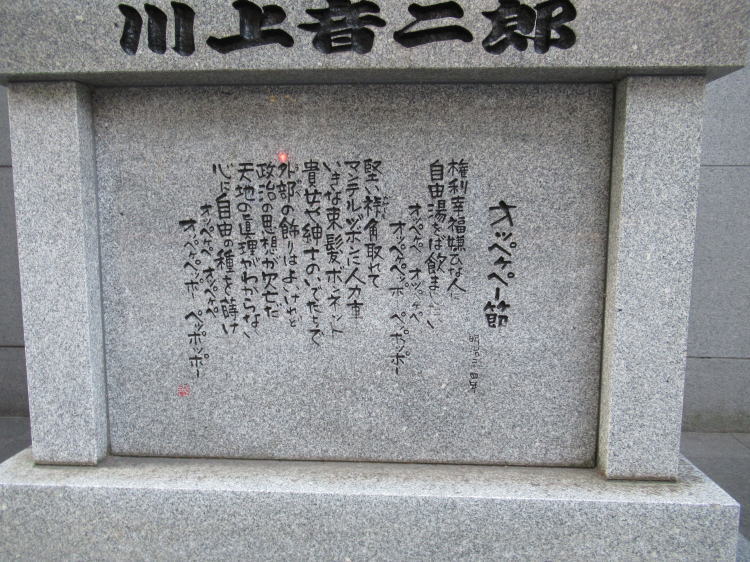 川上音二郎
オッペケペー節
明治二四年
権利幸福嫌ひな人に
自由湯をば飲ましたい
オッペケペ オッペケペ
オッペケペッポ ペッポッポー
堅い裃角取れて
マンテルズボンに人力車
いきな束髪ボンネット
貴女や紳士のいでたちで
外部の飾りはよいけれど
政治の思想が欠乏だ
天地の真理がわからない
心に自由の種を蒔け
オッペケペ オッペケペ
オッペケペッポー ペッポッポー